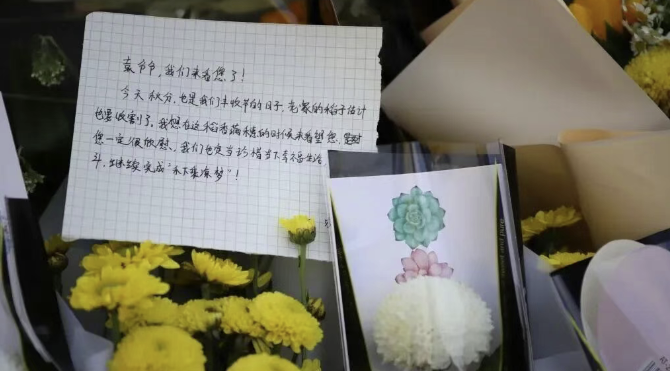 袁爷爷,我们来看您了!
今天秋分,也是我们丰收节的日子,老家的稻子估计
也要收割了。我想在这稻香满穗的时候来看望您,
您一定很欣慰。我们也定当珍惜当下幸福生活
斗,继续完成"禾下乘凉梦"!